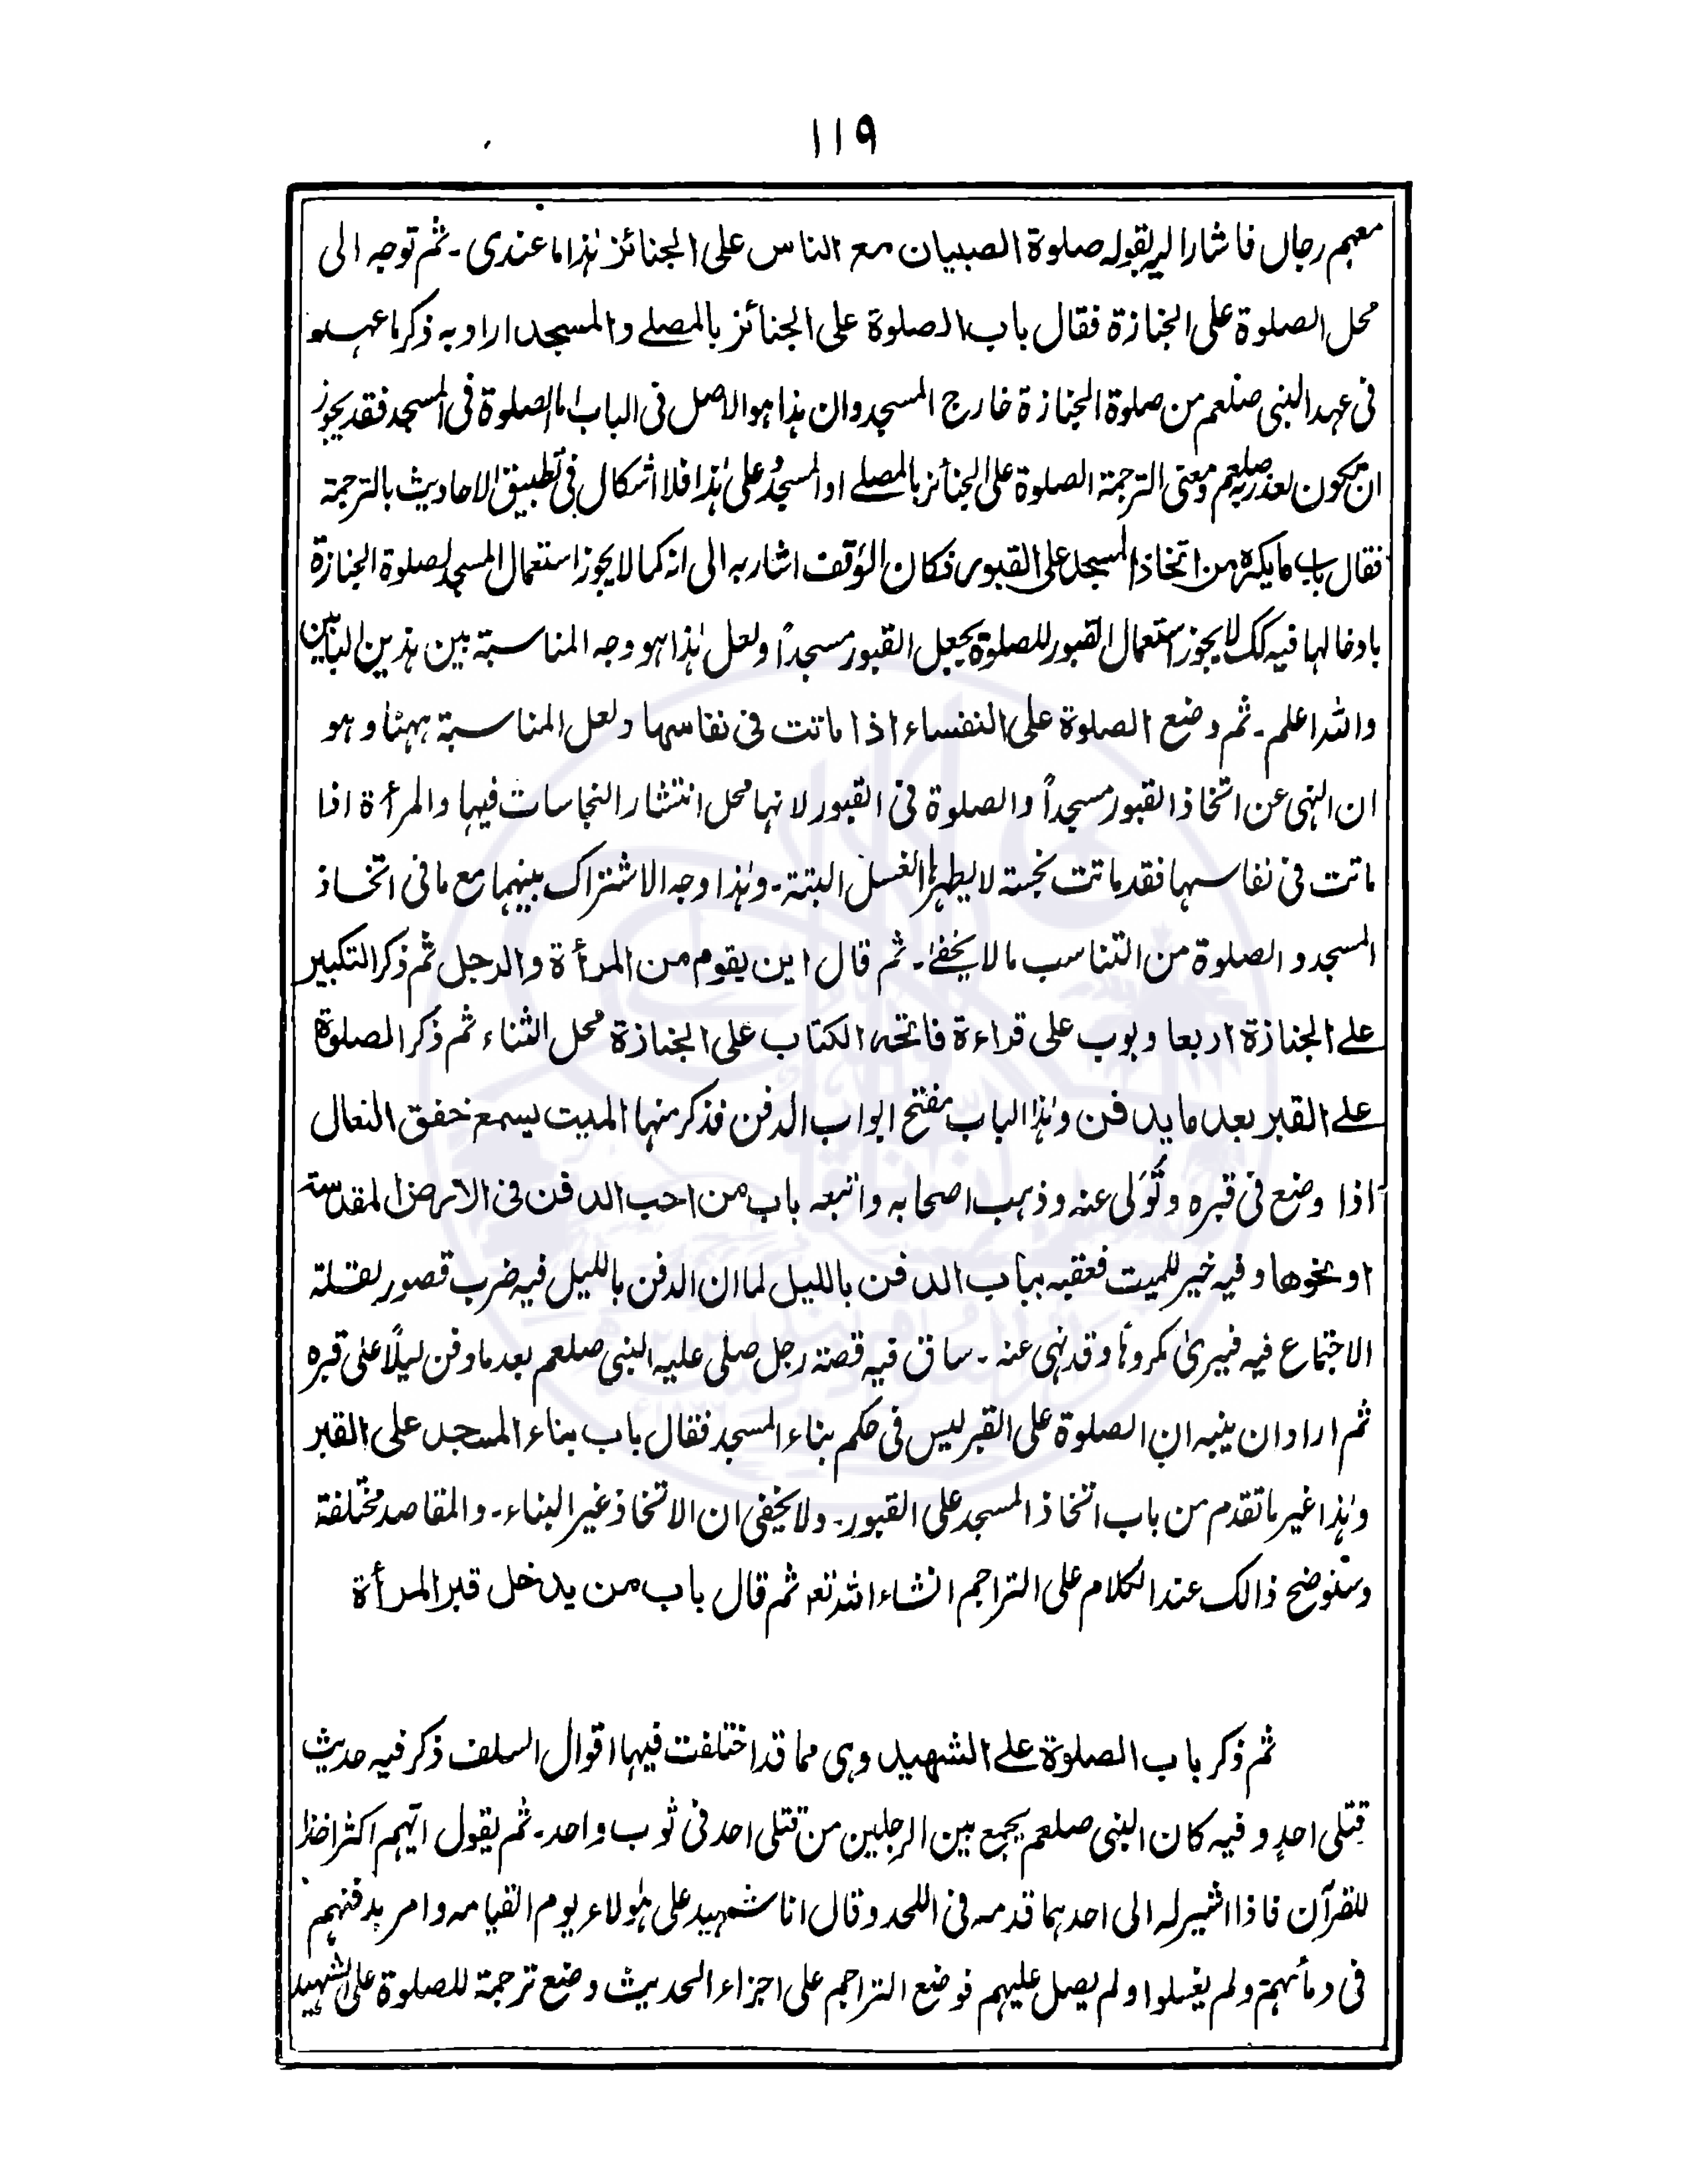 ۱۱۹
معهم رجال فاشار اليه بقوله صلوة الصبيان مع الناس على الجنائز هذا ما عندى ۔ ثم توجه الى
محل الصلوة على الجنازة فقال باب الصلوة على الجنائز بالمصلے والمسجد اراد به ذكر ما عهد
فى عهد النبى صلعم من صلوة الجنازة خارج المسجد وان هذا هو الاصل فى الباب اما الصلوة فى المسجد فقد يجوز
ان تكون لعذر به صلعم ومعنى الترجمة الصلوة على الجنائز بالمصلے او المسجد وعلى هذا فلا اشكال فى تطبيق الاحاديث بالترجمة
فقال باب ما يكره من اتخاذ المسجد على القبور فكان المؤلف اشار به الى انه كما لا يجوز استعمال المسجد لصلوة الجنازة
بادخالها فيه كك لا يجوز استعمال القبور للصلوة بجعل القبور مسجداً ولعل هذا هو وجه المناسبة بين هذين البابين
والله اعلم ۔ ثم وضع الصلوة على النفساء اذا ماتت فى نفاسها ولعل المناسبة ههنا وهو
ان النهى عن اتخاذ القبور مسجداً والصلوة فى القبور لانها محل انتشار النجاسات فيها والمرأة اذا
ماتت فى نفاسها فقد ماتت نجسة لا يطهرها الغسل البتة ۔ وهذا وجه الاشتراك بينهما مع ما فى اتخاذ
المسجد والصلوة من التناسب ما لا يخفےٰ ۔ ثم قال اين يقوم من المرأة والرجل ثم ذكر التكبير
علے الجنازة اربعا وبوب على قراءة فاتحه الكتاب على الجنازة محل الثناء ثم ذكر الصلوة
علے القبر بعد ما يدفن وهذا الباب مفتح ابواب الدفن فذكر منها الميت يسمع خفق النعال
اذا وضع فى قبره وتُوَلى عنه وذهب اصحابه واتبعه باب من احب الدفن فى الارض المقدسة
او نحوها وفيه خير للميت فعقبه بباب الدفن بالليل لما ان الدفن بالليل فيه ضرب قصور لقلة
الاجتماع فيه فيرىٰ مكروهاً وقد نهى عنه ۔ ساق فيه قصة رجل صلى عليه النبى صلعم بعد ما دفن ليلًا على قبره
ثم اراد ان ينبه ان الصلوة على القبر ليس فى حكم بناء المسجد فقال باب بناء المسجد على القبر
وهذا غير ما تقدم من باب اتخاذ المسجد على القبور ۔ ولا يخفى ان الاتخاذ غير البناء ۔ والمقاصد مختلفة
وسنوضح ذالك عند الكلام على التراجم انشاء الله تعه ثم قال باب من يدخل قبر المرأة
ثم ذكر باب الصلوة علے الشهيد وهى مما قد اختلفت فيها اقوال السلف ذكر فيه حديث
قتلى احدٍ وفيه كان النبى صلعم يجمع بين الرجلين من قتلى احد فى ثوب واحد ۔ ثم يقول ايهم اكثر اخذا
للقرآن فاذا اشير له الى احدهما قدمه فى اللحد وقال انا شهيد على هٰولاء يوم القيامه وامر بدفنهم
فى دمائهم ولم يغسلوا ولم يصل عليهم فوضع التراجم على اجزاء الحديث وضع ترجمة للصلوة على الشهيد